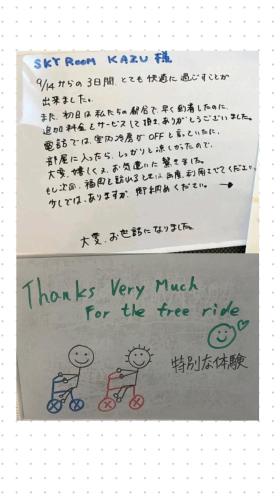 SKY ROOM KAZU 様
9/14からの3日間、とても快適に過ごすことが
出来ました。
また、初日は私たちの都合で早く到着したのに、
追加料金をサービスして頂きありがとうございました。
電話では、室内冷房がOFFと言っていたに、
部屋に入ったら、しっかりと涼しかったので、
大変、嬉しくお気遣いに驚きました。
もし次回、福岡を訪れるときは再度、利用させてください。
少しでは、ありますが、御納めください。→
大変、お世話になりました。
Thanks Very Much
For the free ride
特別な体験